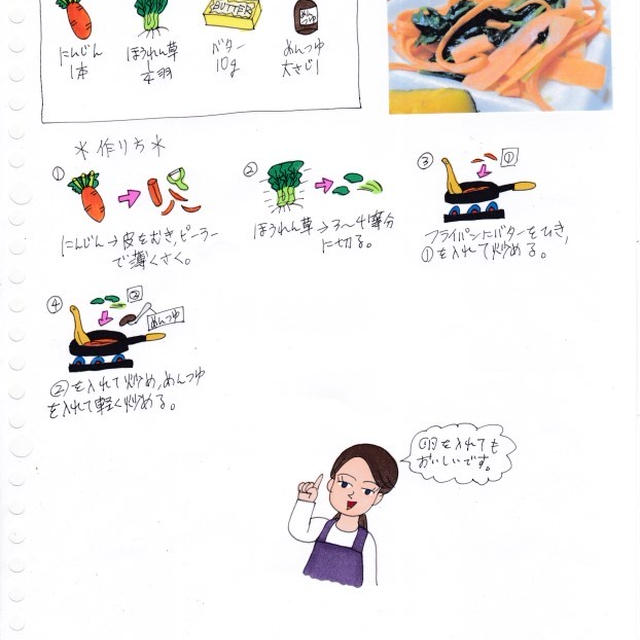 にんじん
1本
ほうれん草
1/4羽
BUTTER
バター
10g
めんつゆ
めんつゆ
大さじ1
*作り方*
①
にんじん→皮をむき,ピーラー
で薄くさく。
②
ほうれん草→3〜4等分
に切る。
③
①
フライパンにバターをひき,
①を入れて炒める。
④
②
めんつゆ
②を入れて炒め,めんつゆ
を入れて軽く炒める。
卵を入れても
おいしいです。